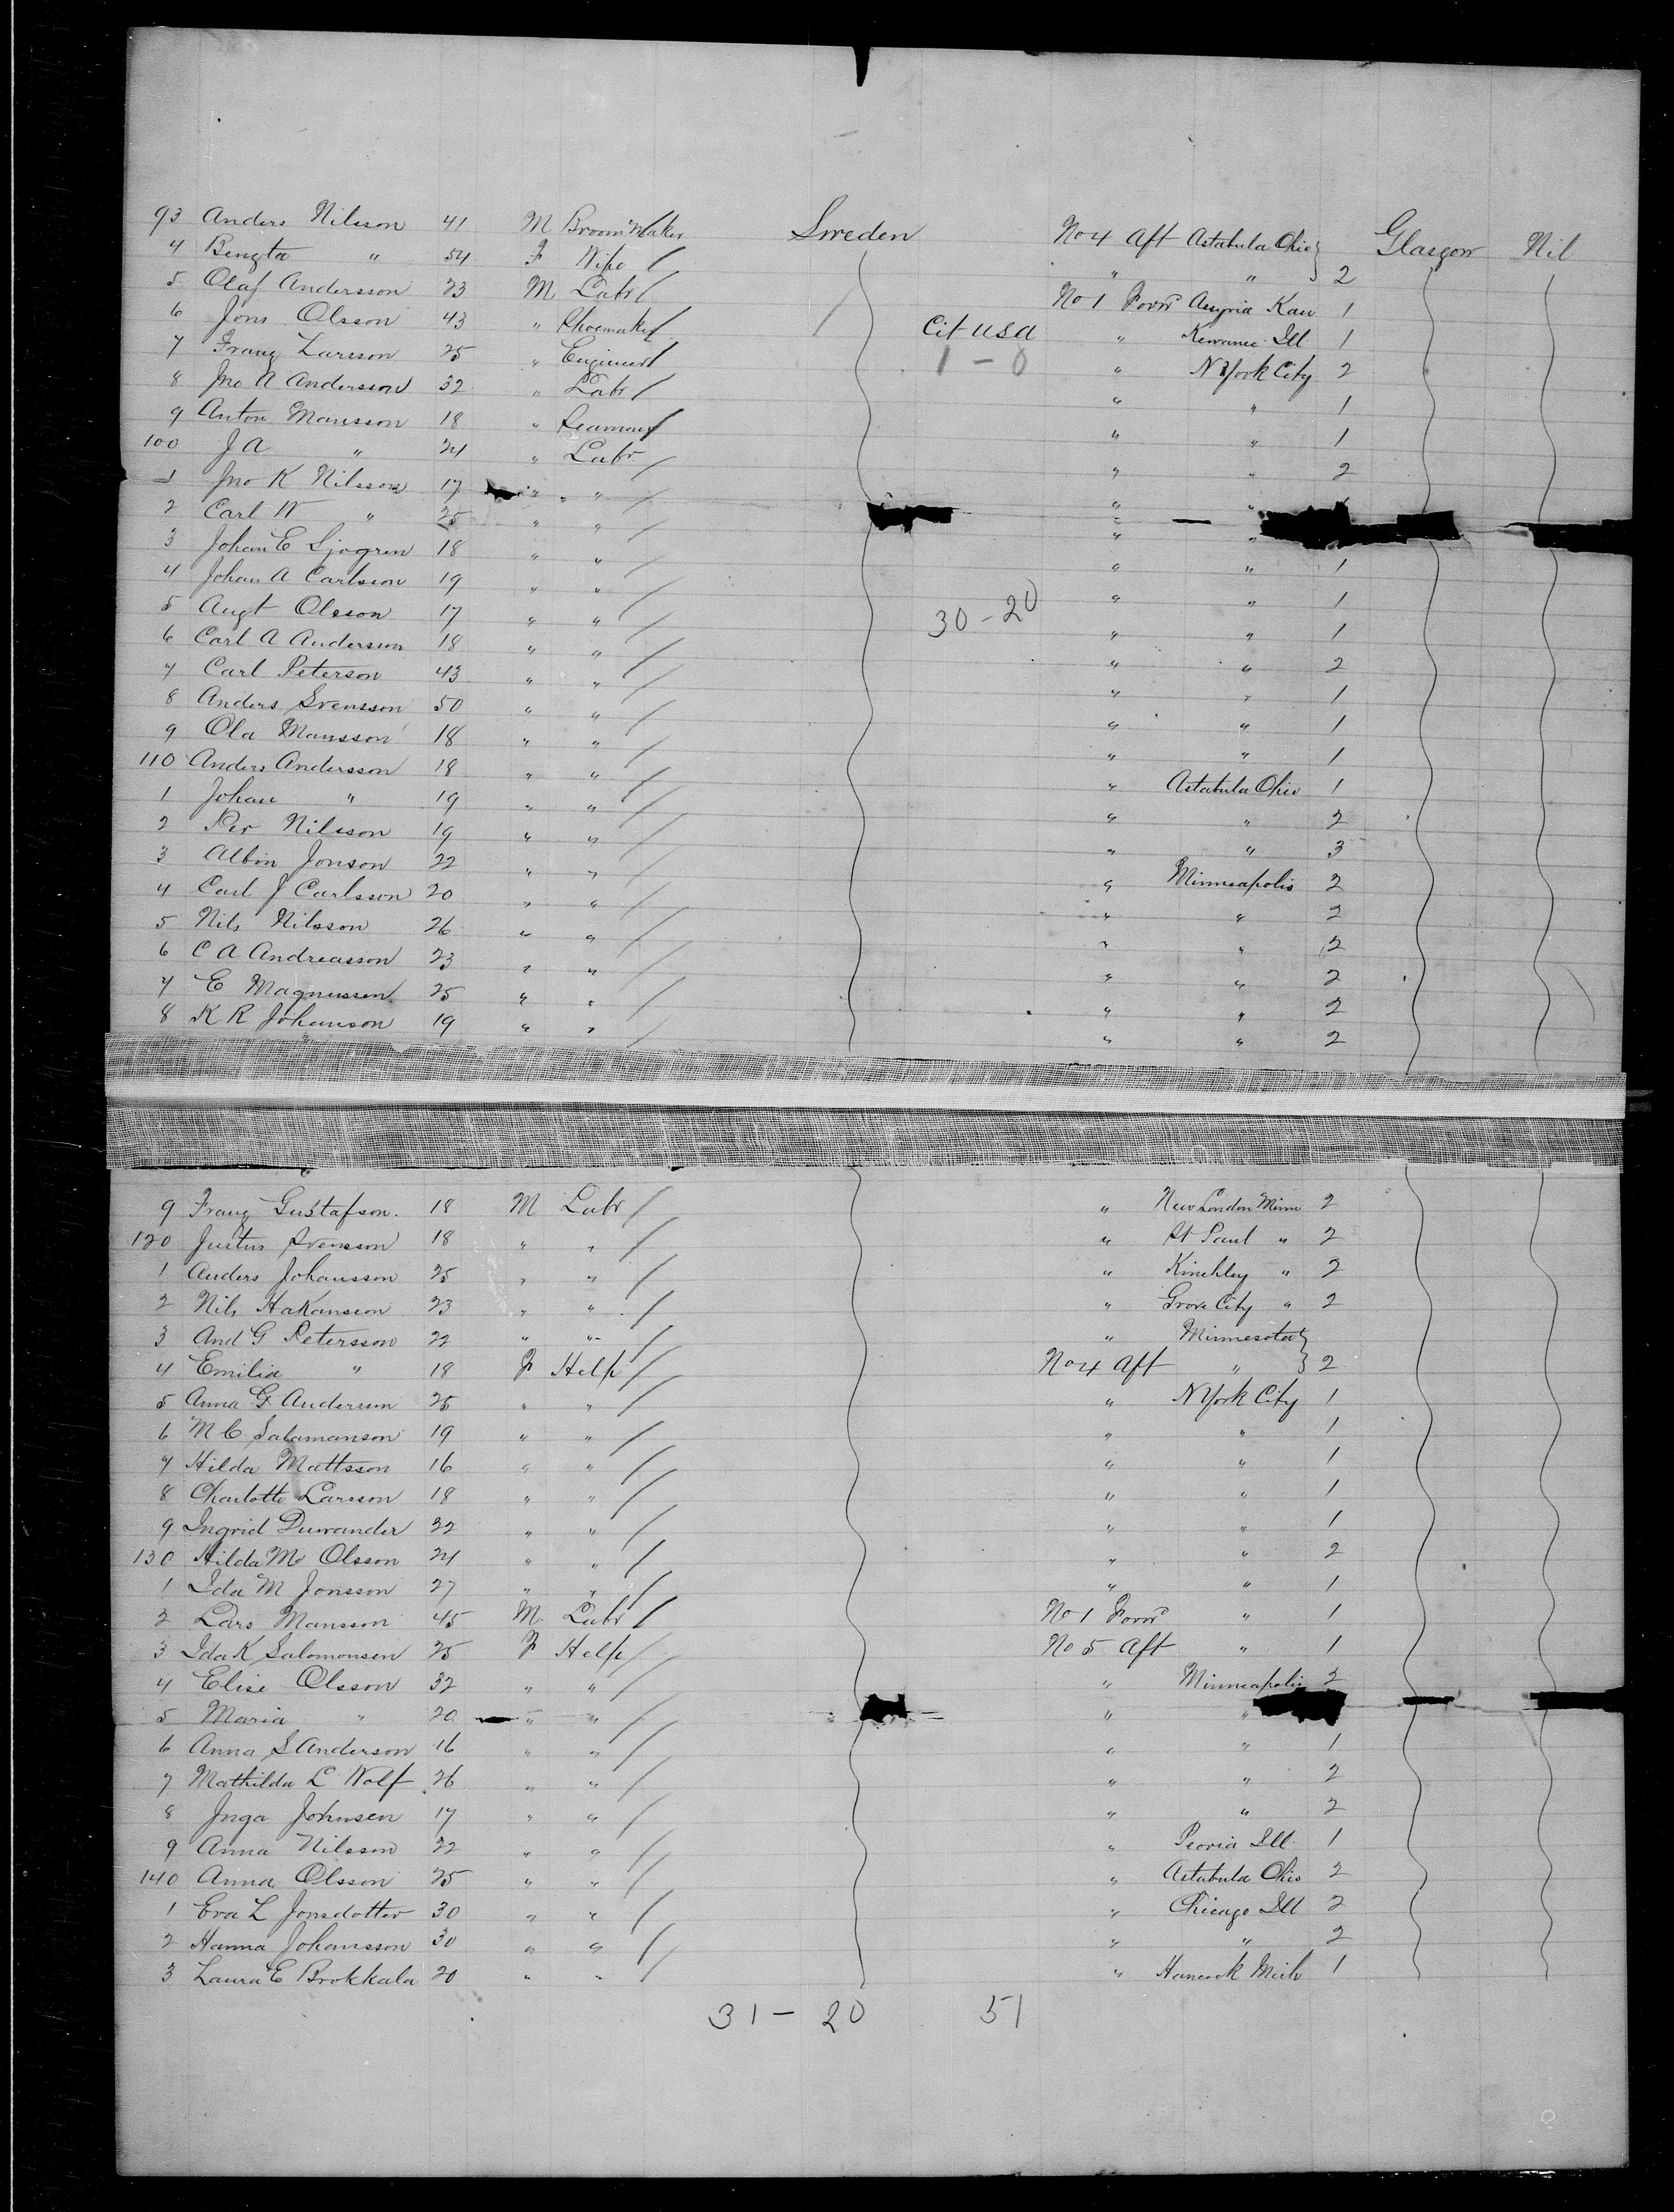 93 Anders Nilsson 41 M Broom Maker Sweden No 4 Aft Astabula Ohio Glasgow Nil
4 Bengta " 54 F Wife " " 2
5 Olaf Andersson 23 M Labr No 1 Forwd Kan 1
6 Jons Olsson 43 " Shoemaker Cit USA " Kewanee Ill 1
7 Franz Larsson 25 " Engineer 1 - 0 " N York City 2
8 Jno A Andersson 32 " Labr " " 1
9 Anton Mansson 18 " Seaman " " 1
100 J A " 24 " Labr " " 2
1 Jno K Nilsson 17 " " " "
2 Carl W " 25 " " " "
3 Johan E Sjogren 18 " " " " 1
4 Johan A Carlsson 19 " " " " 1
5 Augt Olsson 17 " " 30 - 20 " " 1
6 Carl A Anderson 18 " " " " 2
7 Carl Peterson 43 " " " " 1
8 Anders Svensson 50 " " " " 1
9 Ola Mansson 18 " " " " 1
110 Anders Andersson 18 " " " Astabula Ohio 1
1 Johan " 19 " " " " 2
2 Per Nilsson 19 " " " " 3
3 Albin Jonson 22 " " " Minneapolis 2
4 Carl J Carlsson 20 " " " " 2
5 Nils Nilsson 26 " " " " 2
6 C A Andreasson 23 " " " " 2
7 E Magnusson 25 " " " " 2
8 K R Johanson 19 " " " " 2
9 Franz Gustafson. 18 M Labr " New London Minn 2
120 Justus Svensson 18 " " " St Paul " 2
1 Anders Johansson 25 " " " Kinchley " 2
2 Nils Hakanson 23 " " " Grove City " 2
3 And G Petersson 22 " " " Minnesota
4 Emilia " 18 F Help No 4 Aft " 2
5 Anna G Anderson 25 " " " N York City 1
6 M C Salamanson 19 " " " " 1
7 Hilda Mattsson 16 " " " " 1
8 Charlotte Larsson 18 " " " " 1
9 Ingrid Duvander 32 " " " " 1
130 Hilda M Olsson 24 " " " " 2
1 Ida M Jonsson 27 " " " " 1
2 Lars Mansson 45 M Labr No 1 Forwd " 1
3 Ida K Salomonsen 25 F Help No 5 Aft " 1
4 Elise Olsson 32 " " " Minneapolis 2
5 Maria " 20 " " " "
6 Anna S Anderson 16 " " " " 1
7 Mathilda L Wolf 26 " " " " 2
8 Inga Johnsen 17 " " " " 2
9 Anna Nilsson 22 " " " Peoria Ill 1
140 Anna Olsson 25 " " " Astabula Ohio 2
1 Eva L Jonsdotter 30 " " " Chicago Ill 2
2 Hanna Johansson 30 " " " " 2
3 Laura E Brokkala 20 " " " Hancock Mich 1
31 - 20 51